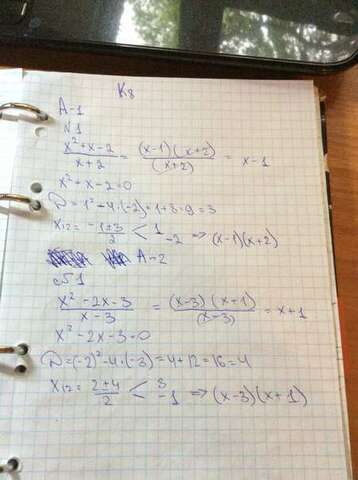 К8
А-1
№1
x²+x-2/x+2 = (x-1)(x+2)/(x+2) = x-1
x²+x-2=0
D=1²+4·(-2)=1+8=9=3
x₁₂= -1±3/2 < 1 -2 => (x-1)(x+2)
А-2
№1
x²-2x-3/x-3 = (x-3)(x+1)/(x-3) = x+1
x²-2x-3=0
D=(-2)²-4·(-3)=4+12=16=4
x₁₂= 2±4/2 < 3 -1 => (x-3)(x+1)